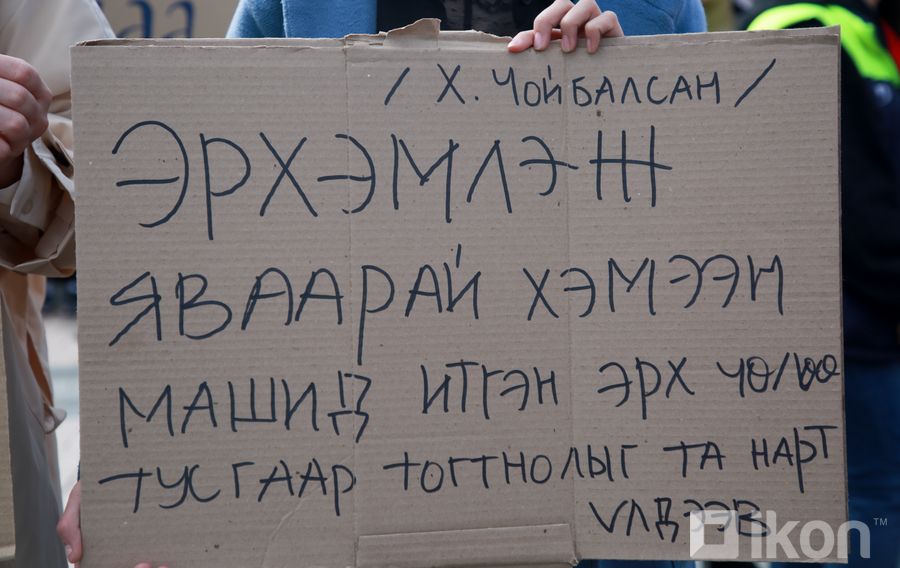 / Х. ЧОЙБАЛСАН /
ЭРХЭМЛЭЖ
ЯВААРАЙ ХЭМЭЭН
МАШИД ИТГЭН ЭРХ ЧӨЛӨӨ
ТУСГААР ТОГТНОЛЫГ ТА НАРТ
ҮЛДЭЭВ
ikon™